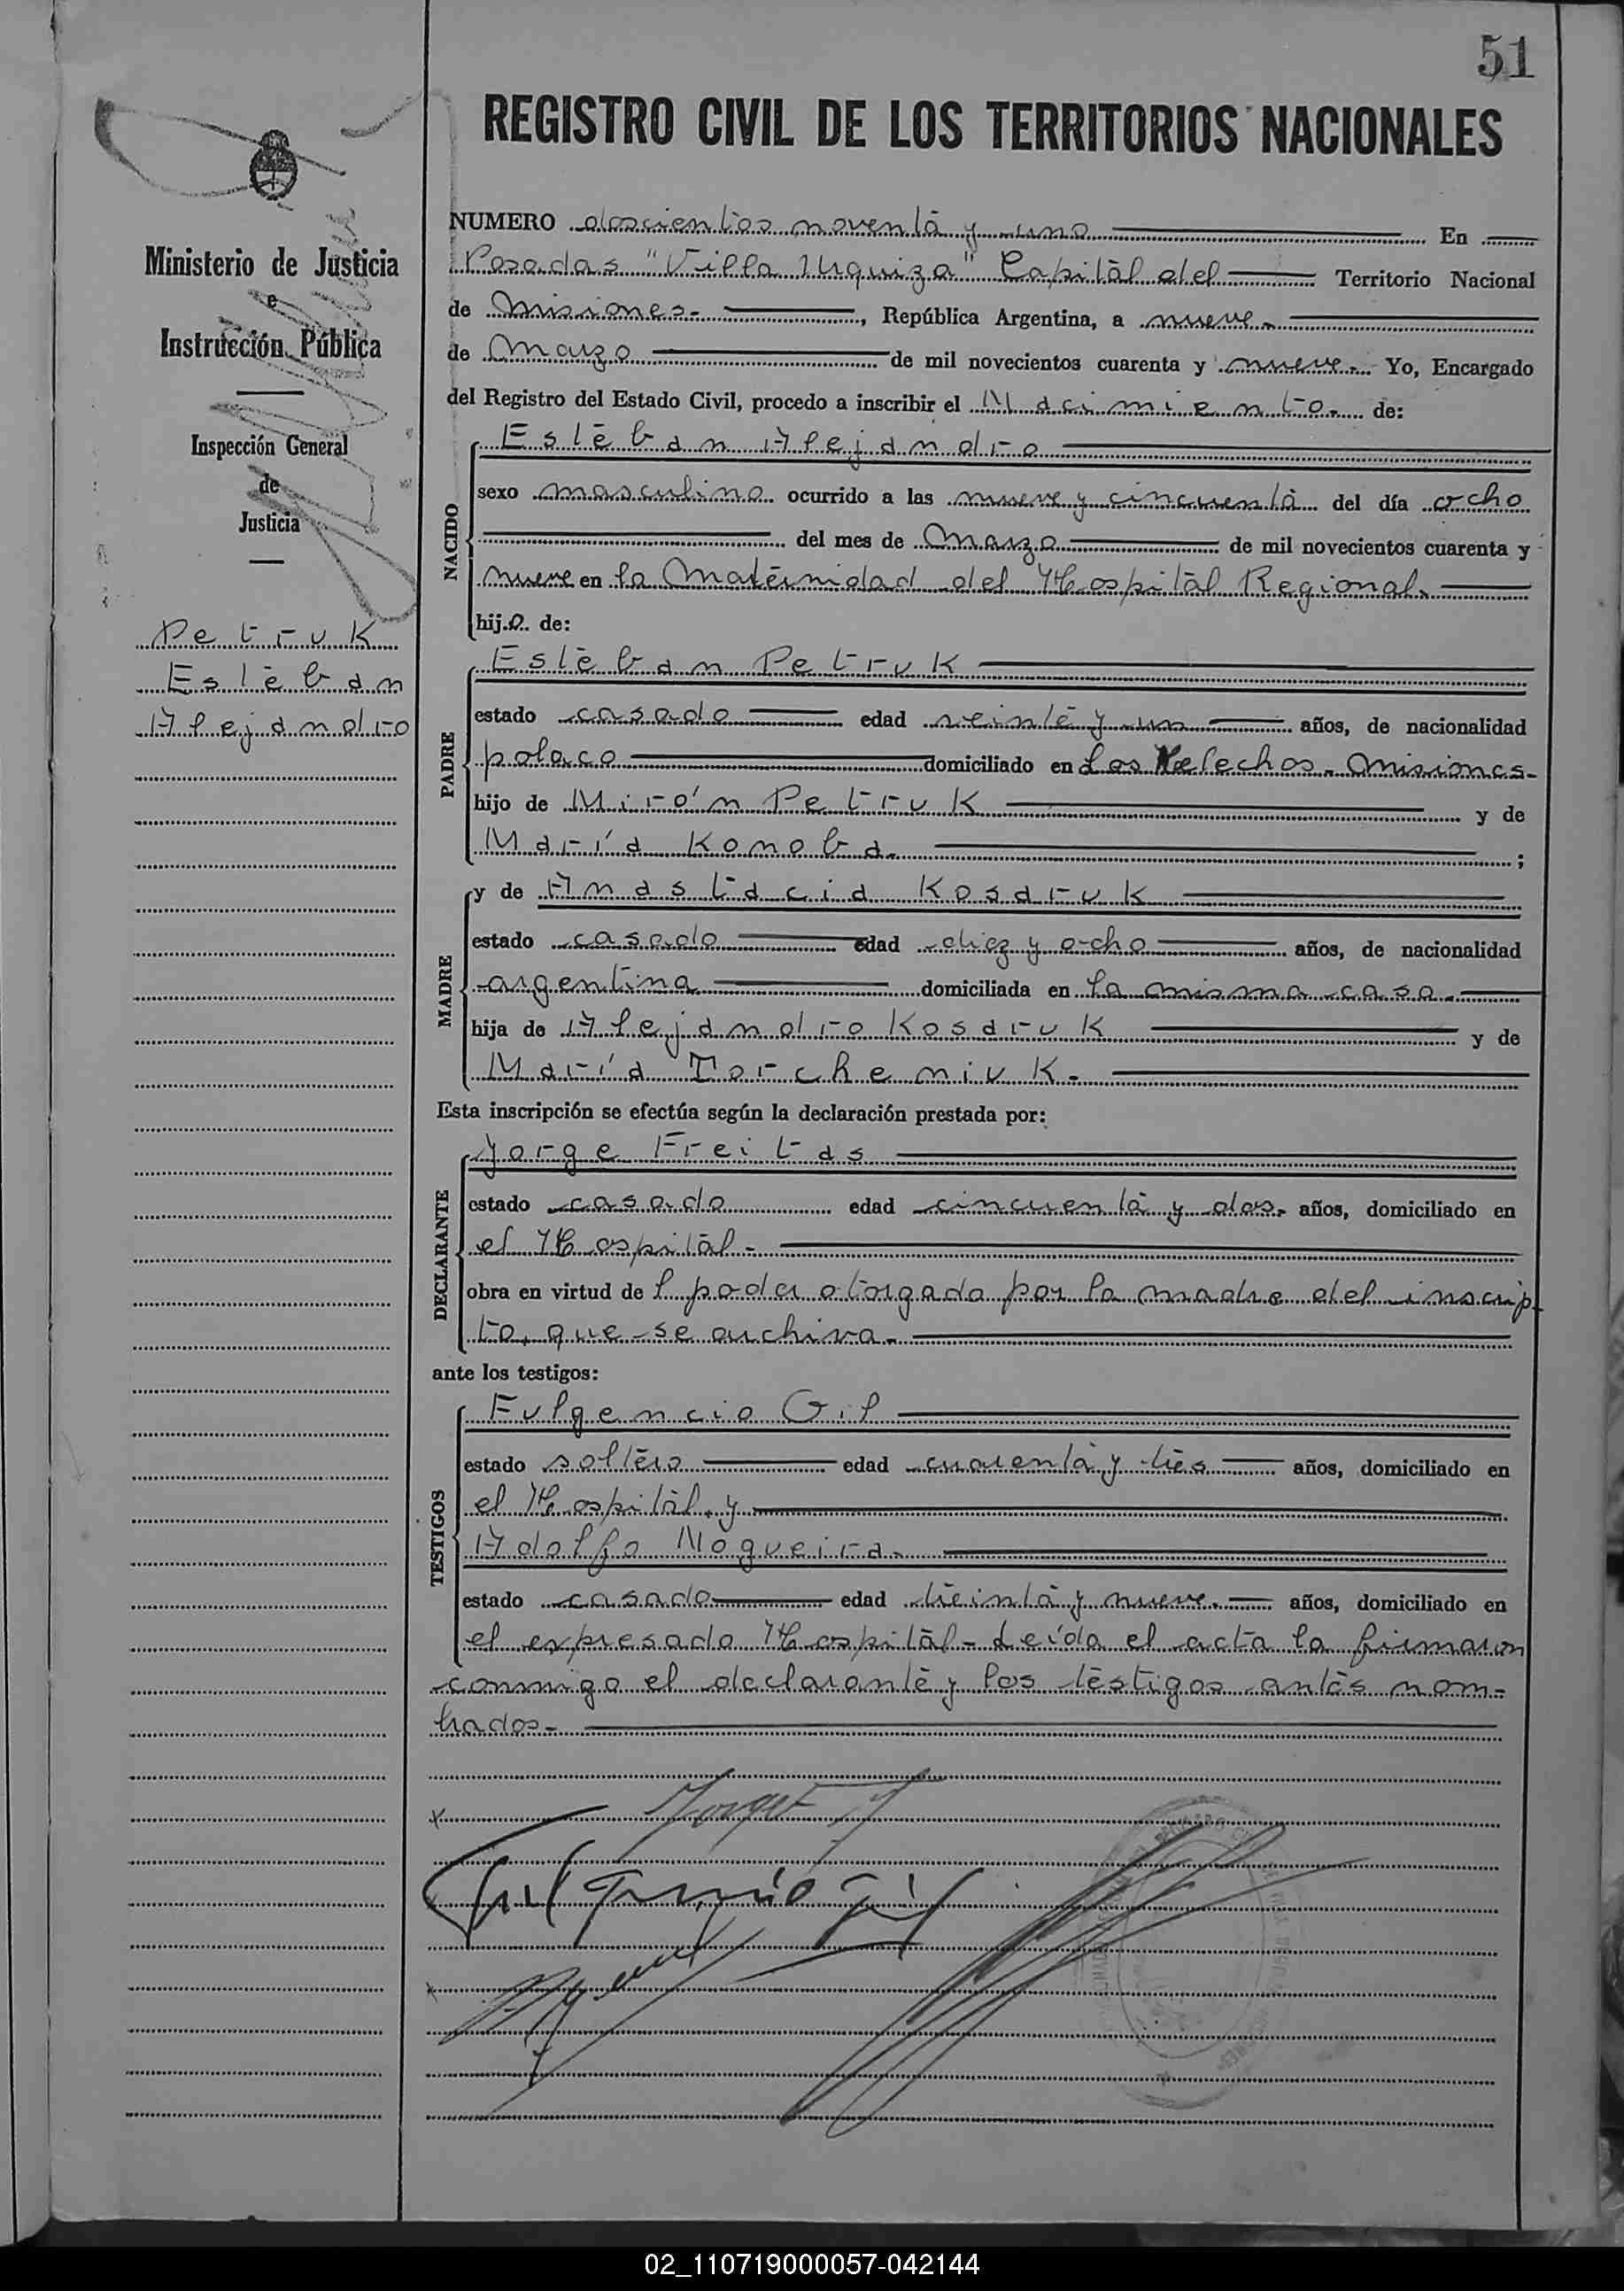 51
REGISTRO CIVIL DE LOS TERRITORIOS NACIONALES
Ministerio de Justicia
e
Instrucción Pública
Inspección General
de
Justicia
Petruk
Esteban
Alejandro
NUMERO doscientos noventa y uno En
Posadas "Villa Urquiza" Capital del Territorio Nacional
de Misiones.- , República Argentina, a nueve.-
de Marzo de mil novecientos cuarenta y nueve.- Yo, Encargado
del Registro del Estado Civil, procedo a inscribir el Nacimiento. de:
NACIDO
Esteban Alejandro
sexo masculino ocurrido a las nueve y cincuenta del día ocho
del mes de Marzo de mil novecientos cuarenta y
nueve en la Maternidad del Hospital Regional.
hij.o. de:
PADRE
Esteban Petruk
estado casado edad veinte y un años, de nacionalidad
polaco domiciliado en Los Helechos.- Misiones.-
hijo de Mirón Petruk y de
María Konoba. ;
MADRE
y de Anastacia Kosaruk
estado casado edad diez y ocho años, de nacionalidad
argentina domiciliada en la misma casa.
hija de Alejandro Kosaruk y de
María Torcheniuk.
Esta inscripción se efectúa según la declaración prestada por:
DECLARANTE
Jorge Freitas
estado casado edad cincuenta y dos.- años, domiciliado en
el Hospital.-
obra en virtud de l poder otorgado por la madre del inscrip-
to, que se archiva.-
ante los testigos:
TESTIGOS
Fulgencio Gil
estado soltero edad cuarenta y tres años, domiciliado en
el Hospital, y
Adolfo Nogueira.
estado casado edad treinta y nueve. años, domiciliado en
el expresado Hospital.- Leída el acta la firmaron
conmigo el declarante y los testigos antes nom-
brados.-
Fulgencio Gil
02_110719000057-042144